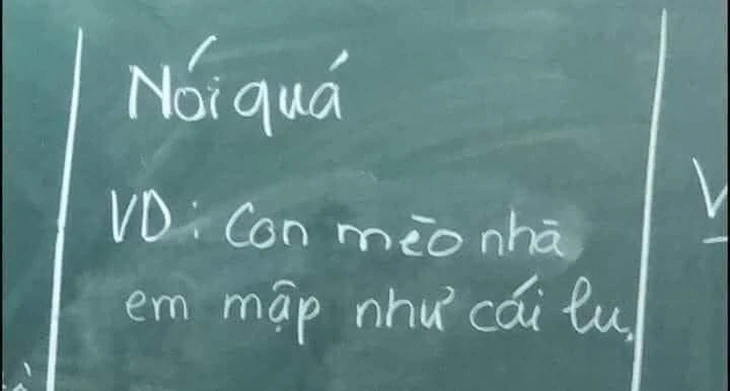 Nói quá
VD: Con mèo nhà
em mập như cái lu.
V